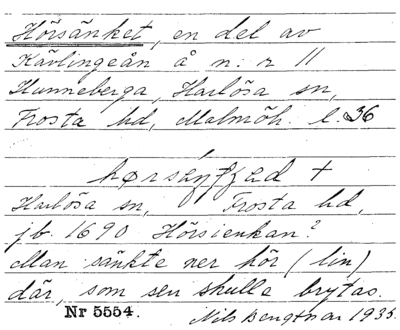 Hörsänket, en del av
Kävlingeån å n:r 11
Hunneberga, Harlösa sn,
Frosta hd, Malmöh. l. 36
Harlösa sn, Frosta hd,
jb. 1690 Hörsienkan?
Man sänkte ner hör (lin)
där, som sen skulle brytas.
Nr 5554. Nils Bengtsson 1935.